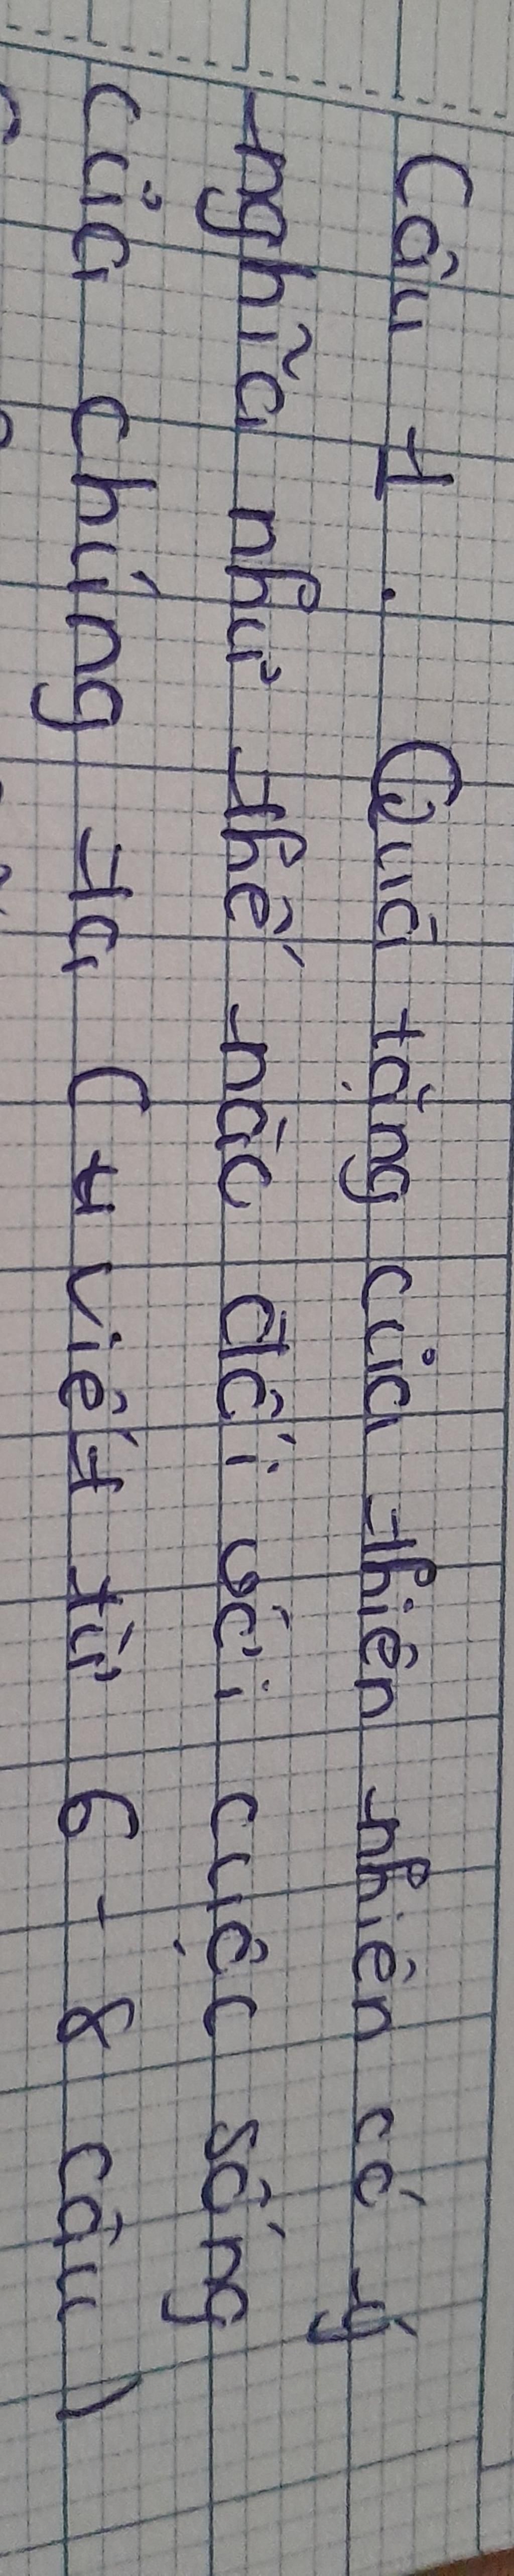 Câu 1. Quà tặng của thiên nhiên có ý
nghĩa như thế nào đối với cuộc sống
của chúng ta ( viết từ 6 - 8 câu )